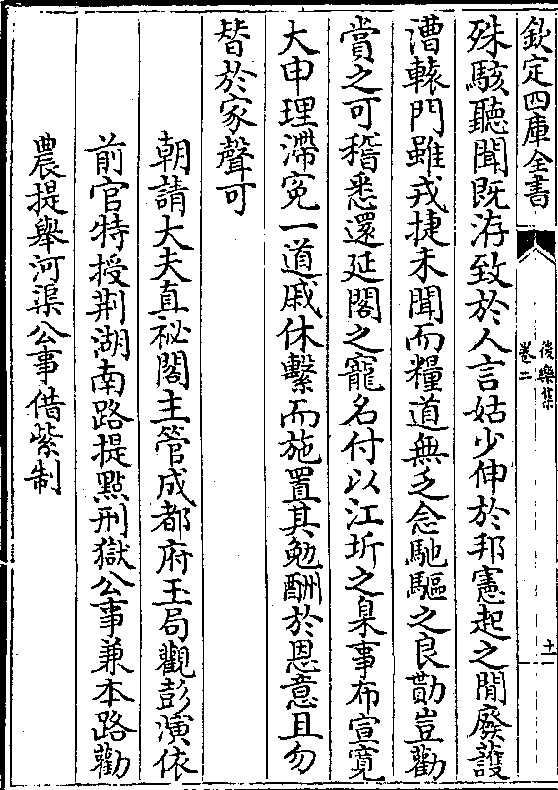 欽定四庫全書
後樂集
卷二
十
殊駭聽聞既洊致於人言姑少伸於邦憲起之閒廢護
漕轅門雖戎捷未聞而糧道無乏念馳驅之良勩豈勸
賞之可稽悉還延閣之寵名付以江圻之臬事布宣寛
大申理滯寃一道戚休繫而施置其勉酬於恩意且勿
替於家聲可
朝請大夫直祕閣主管成都府玉局觀彭演依
前官特授荆湖南路提㸃刑獄公事兼本路勸
農提舉河渠公事借紫制